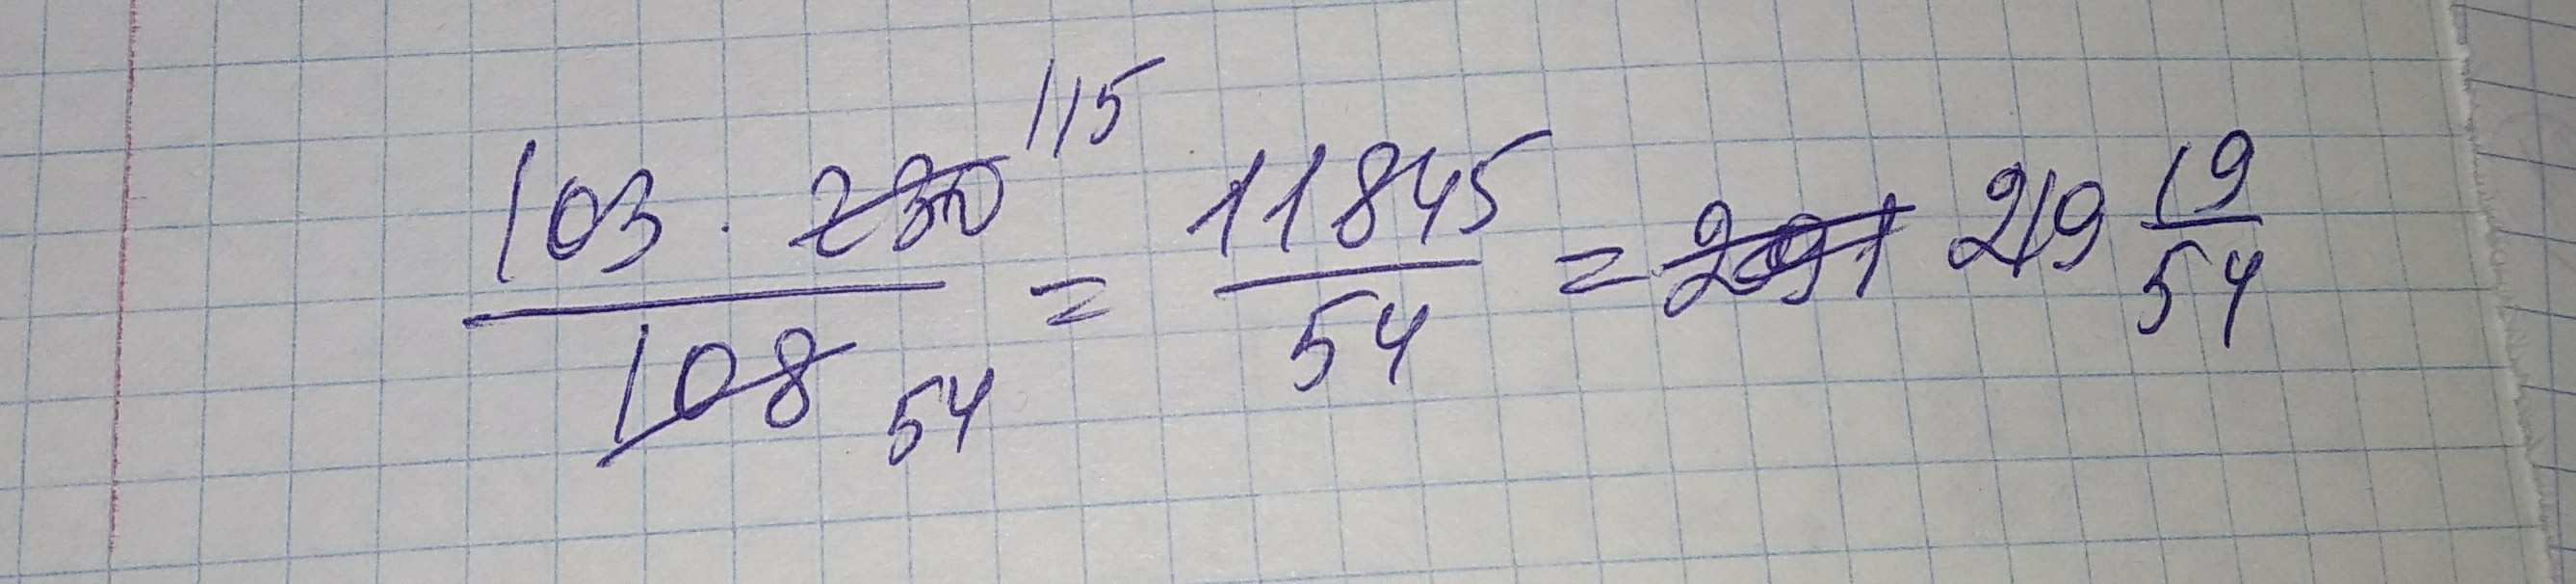 103 · 230 115 / 108 54 = 11845 / 54 = 291 219 19/54